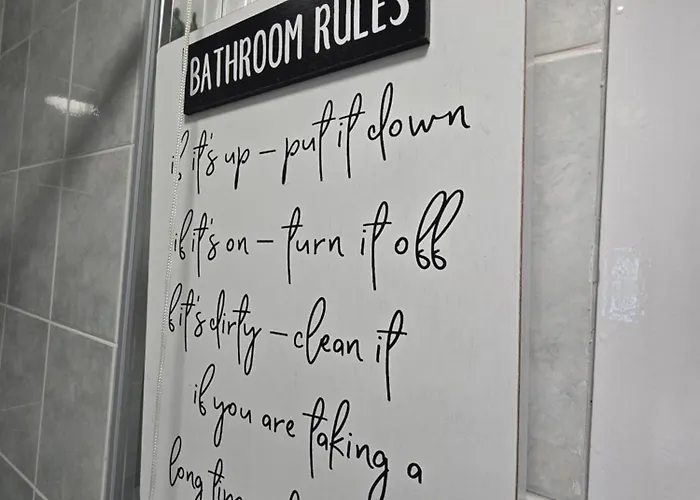 BATHROOM RULES
if it's up – put it down
if it's on – turn it off
if it's dirty – clean it
if you are taking a
long time